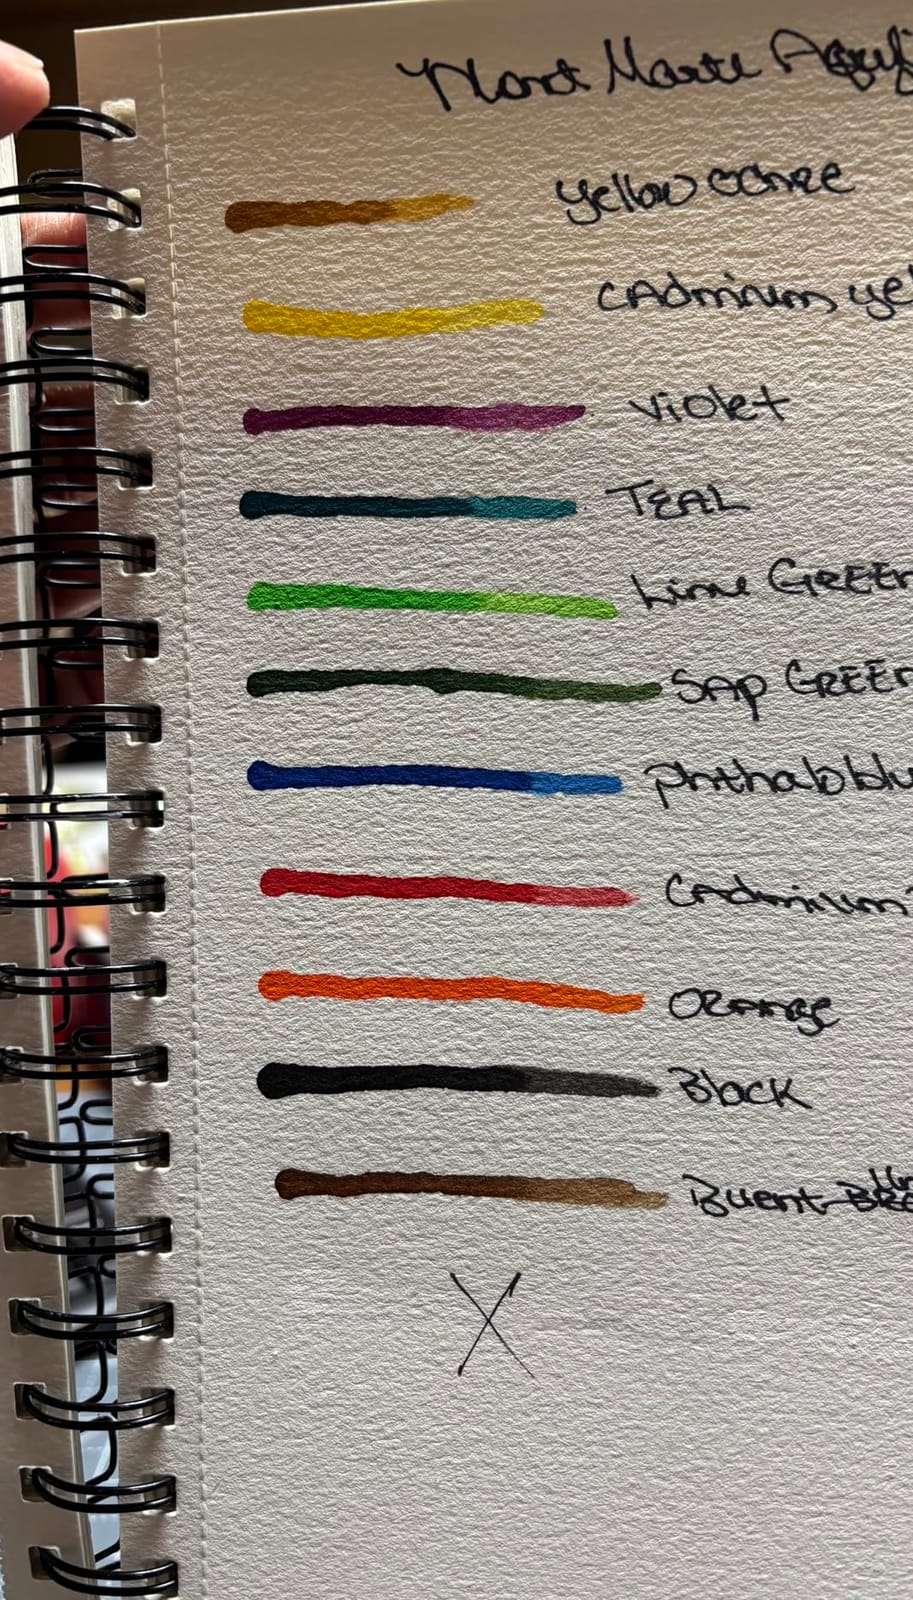 Mont Marte Acryli
Yellow ochre
CADminum yel
Violet
TEAL
Lime GREEN
SAP GREEN
phthalo blu
CADmium
Orange
Black
Burnt
X